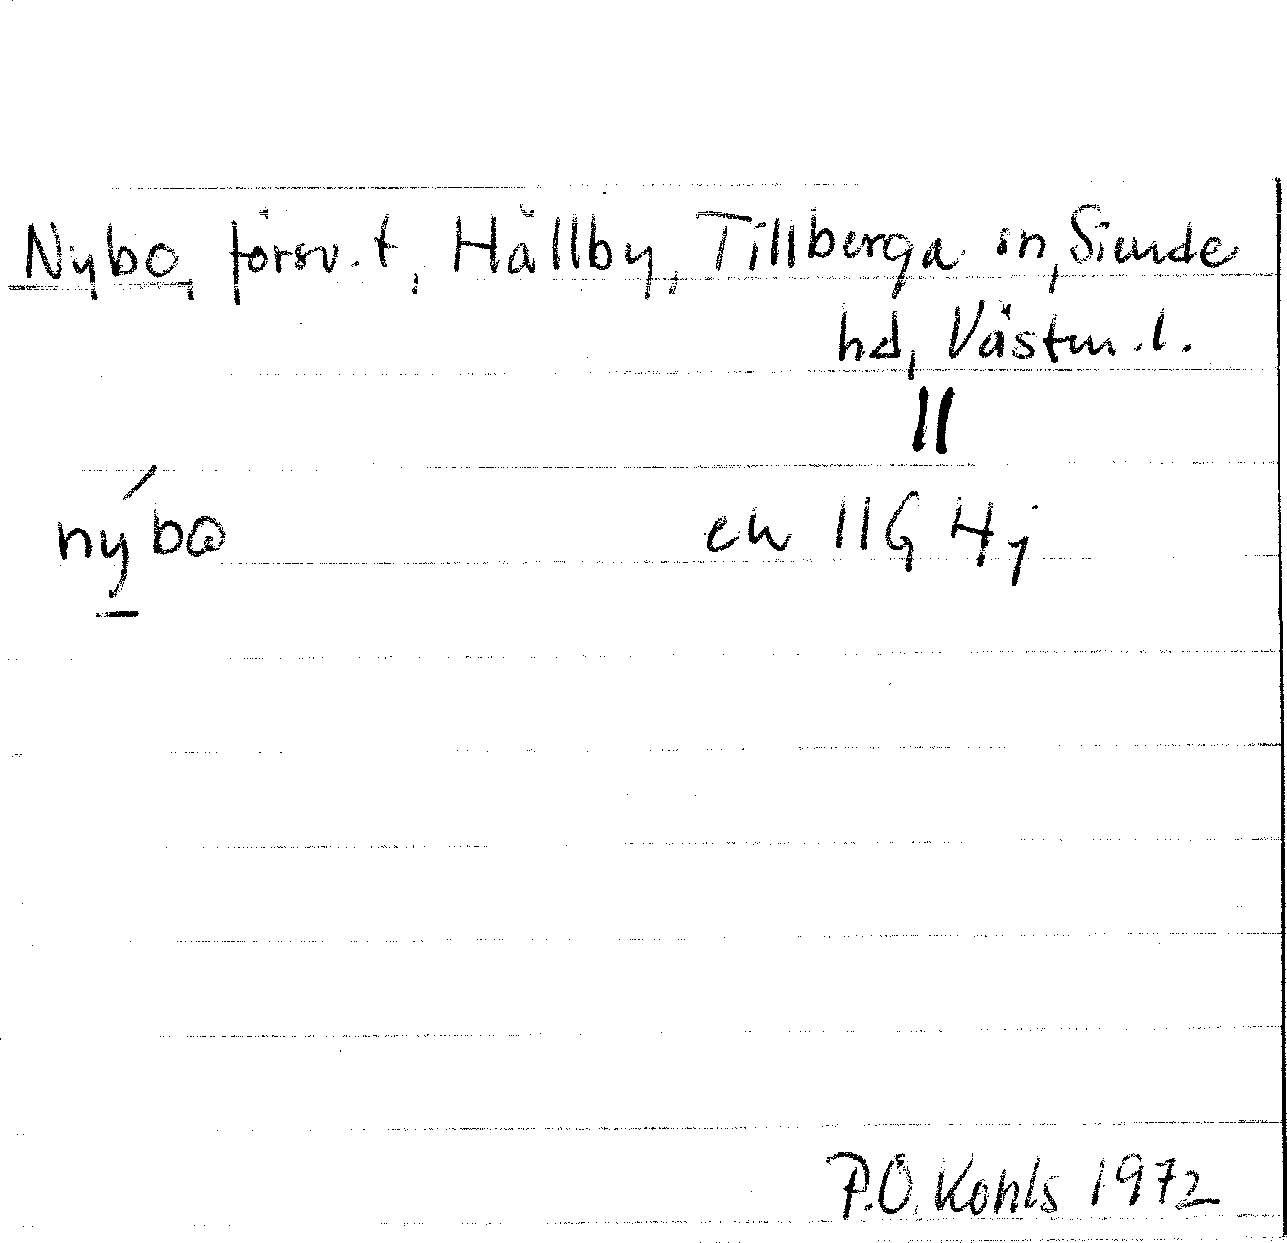 Nybo, försv. t, Hällby, Tillberga sn, Siende
hd, Västm. l.
II
nýbɷ ek 11G 4j
P.Ö. Kohls 1972